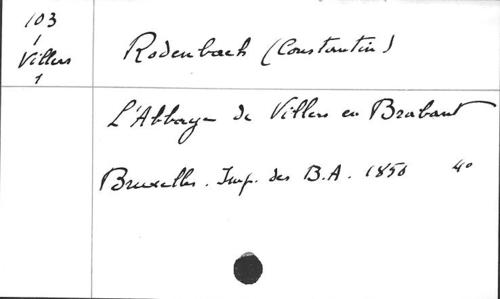 103
1
Villers
1
Rodenbach (Constantin)
L'Abbaye de Villers en Brabant
Bruxelles. Imp. des B.A. 1850 4o